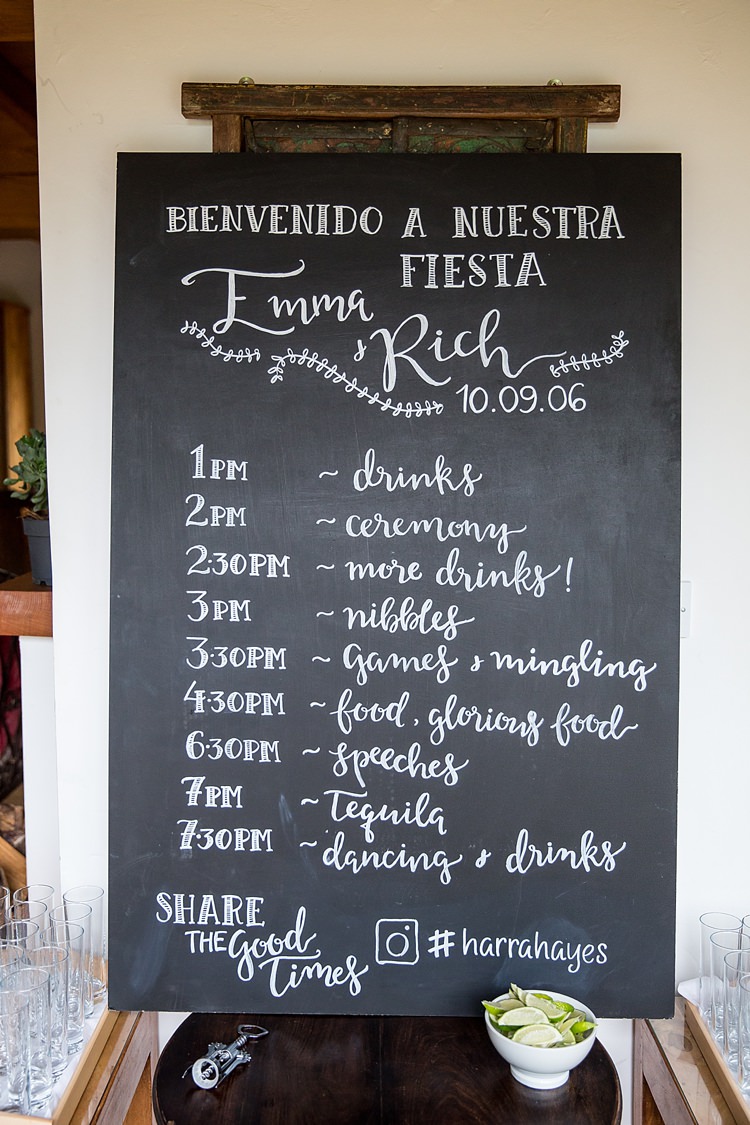 BIENVENIDO A NUESTRA
FIESTA
Emma
& Rich
10.09.06
1PM ~ drinks
2PM ~ ceremony
2:30PM ~ more drinks!
3PM ~ nibbles
3:30PM ~ Games & mingling
4:30PM ~ food, glorious food
6:30PM ~ speeches
7PM ~ Tequila
7:30PM ~ dancing & drinks
SHARE
THE Good
Times
#harrahayes